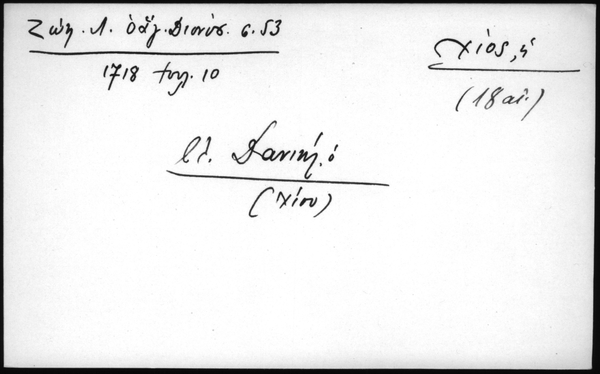 Ζώη. Λ. ὁ ἅγ. Διονύσ. σ. 53
1718 Ἰουλ. 10
Χίος, ἡ
(18 αἰ.)
βλ. Δανιήλ. ὁ
(Χίου)